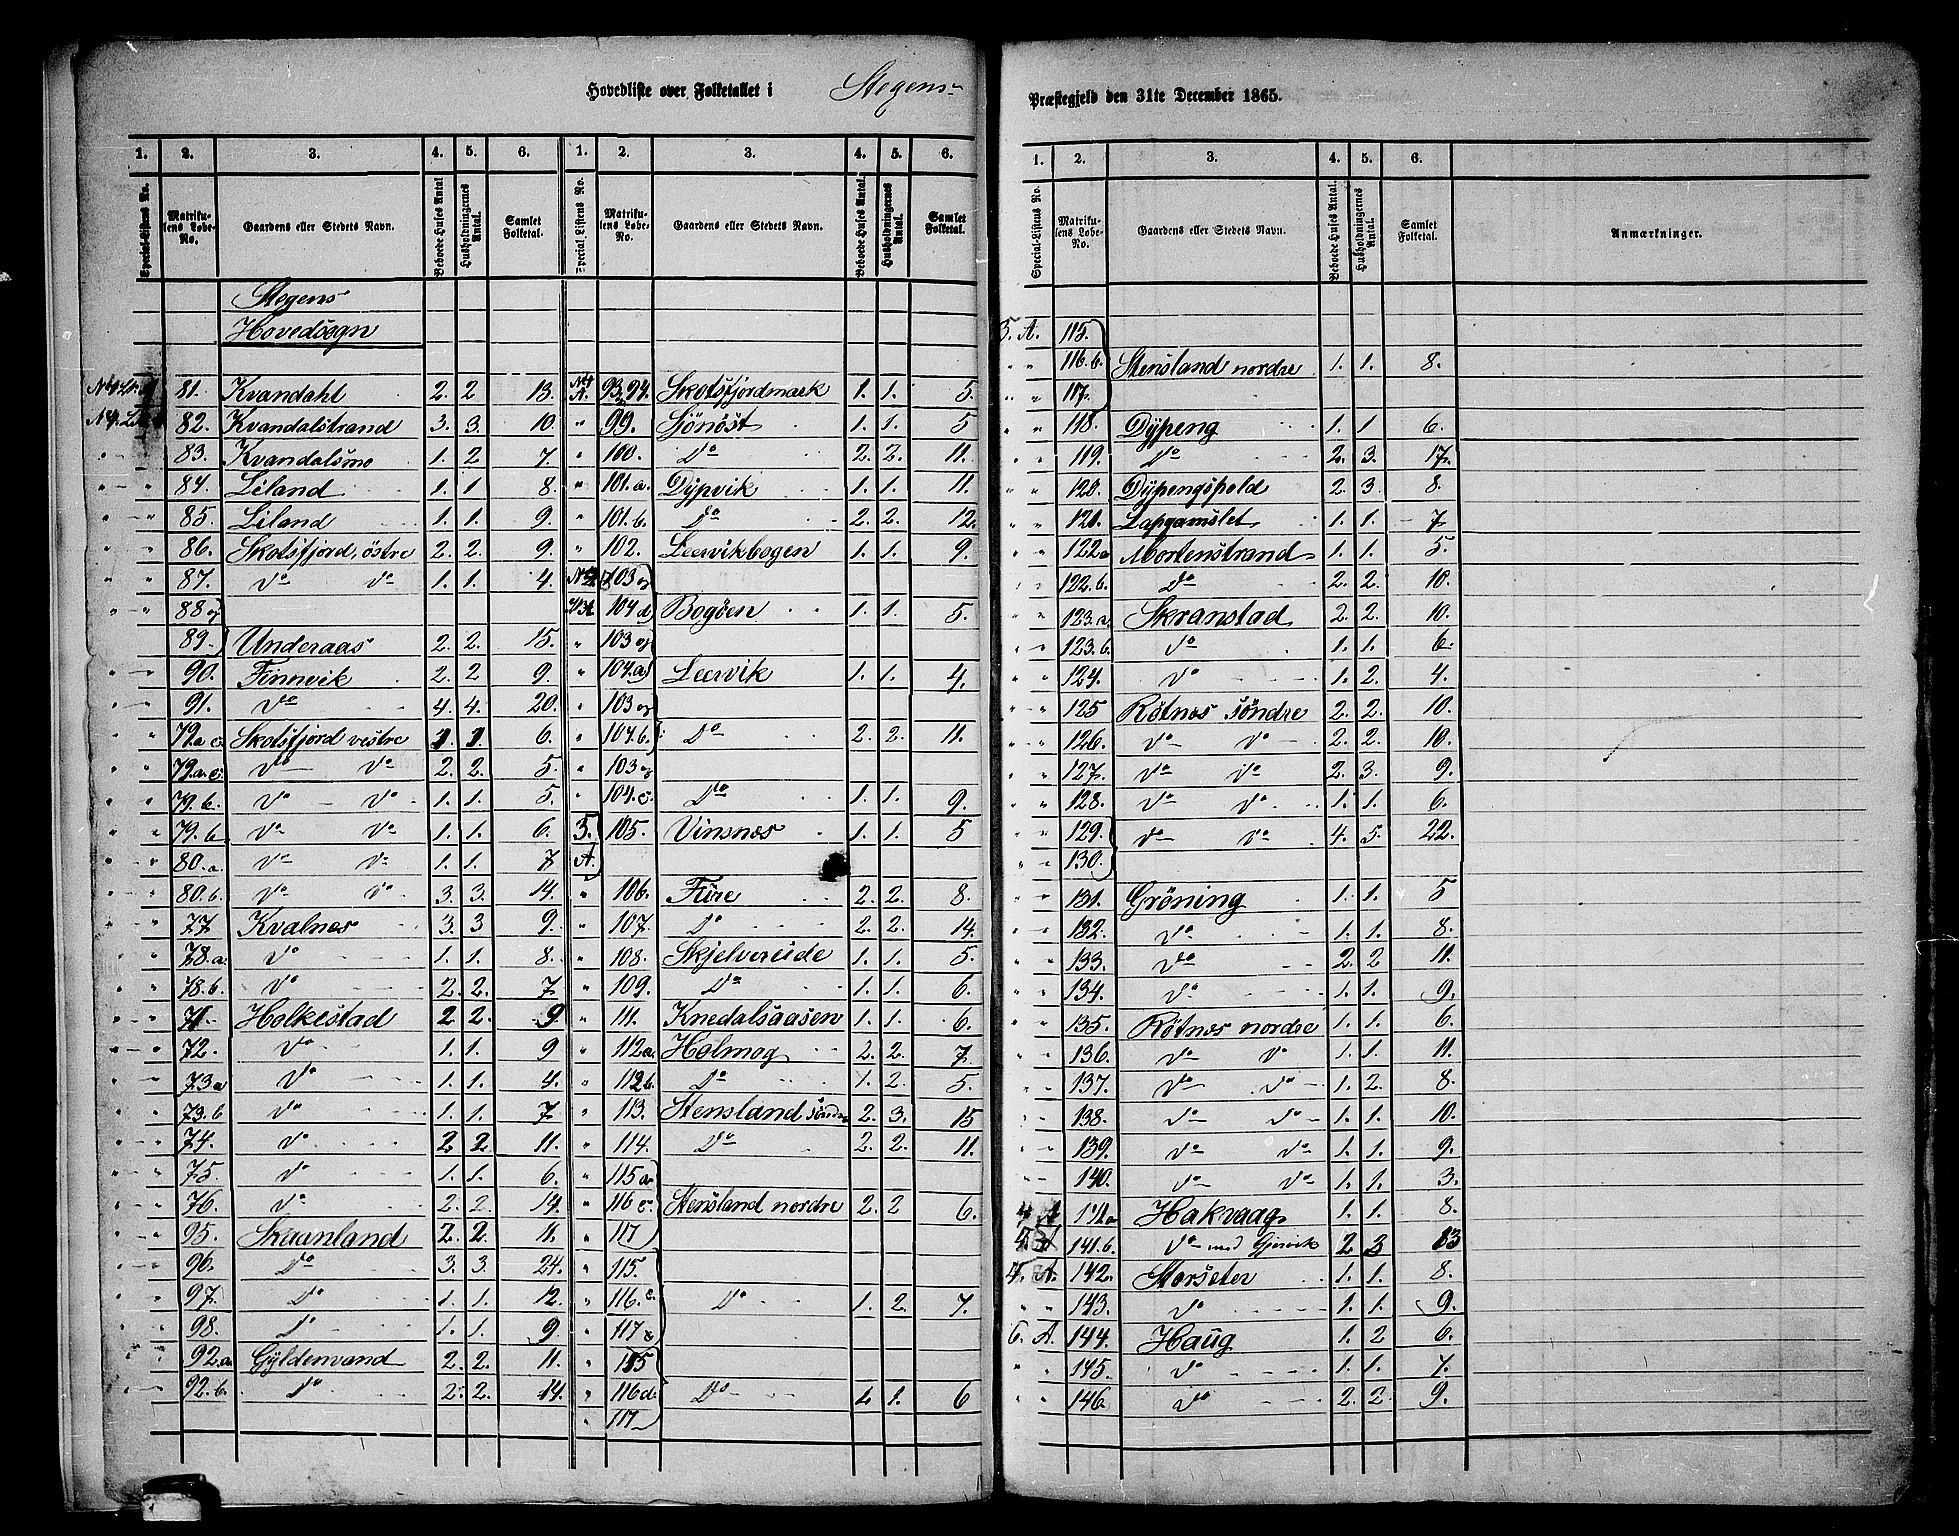 Hovedliste over Folketallet i Stegens
Præstegjeld den 31te December 1865.
1. 2. 3. 4. 5. 6. 1. 2. 3. 4. 5. 6.
Special-Listens No. Matrikulens Løbe-No. Gaardens eller Stedets Navn. Beboede Huses Antal Husholdningernes Antal. Samlet Folketal. Special-Listens No. Matrikulens Løbe-No. Gaardens eller Stedets Navn. Beboede Huses Antal. Husholdningernes Antal. Samlet Folketal.
Stegens
Hovedsogn
81. Kvandahl 2. 2. 13.
82. Kvandalstrand 3. 3. 10.
83. Kvandalsmo 1. 2. 7.
84. Liland 1. 1. 8.
85. Liland 1. 1. 9.
86. Skotsfjord, østre 2. 2. 9.
87. Do Do 1. 1. 4.
88 og
89. Underaas 2. 2. 15.
90. Finnvik 2. 2 9.
91. Do 4. 4. 20.
79. a c. Skotsfjord vestre 1. 1. 6.
79. a. c. Do Do 2. 2. 5.
79. b. Do Do 1. 1. 5.
79. b Do Do 1. 1. 6.
80. a. Do Do 1. 1. 7
80. b. Do Do 3. 3. 14.
77 Kvalnes 3. 3 9.
78. a. Do 1. 1. 8.
78. b. Do 2. 2. 7.
71. Holkestad 2 2. 9
72. Do 1. 1. 9
73 a Do 1. 1. 4.
73. b Do 1. 1. 7
74. Do 2 2. 11.
75. Do 1. 1. 6.
76. Do 2. 2. 14.
95. Skaanland 2. 2. 11.
96. Do 3. 3. 24.
97. Do 1. 1. 12.
98. Do 1. 1. 9
92. a. Gyldenvand 2. 2. 11.
92. b. Do 2. 2. 14.
93, 94. Skotsfjordmark 1. 1. 5.
99. Sjønøst 1. 1. 5
100. Do 2. 2. 11.
101. a. Dypvik 1. 1. 11.
101. b. Do 2. 2. 12.
102. Leervikbogen 1. 1. 9.
103 og
104 d Bogøen 1. 1. 5.
103 og
104. a Leervik 1. 1. 4.
103 og
104. b. Do 2. 2. 11.
103 og
104. c. Do 1. 1. 9.
5. A. 105. Vinsnes 1. 1. 5
106. Fure 2. 2. 8.
107. Do 2. 2. 14.
108. Skjelvereide 1. 1. 5.
109. Do 1. 1. 6.
111. Knedalsaasen 1. 1. 6.
112 a. Holmog 2. 2. 7
112 b. Do 1. 2. 5.
113. Stensland søndre 2. 3. 15
114. Do 2. 2. 11.
115 a.
116 c. Stensland nordre 2. 2 6.
117
115.
116. c. Do 1. 2. 7.
117
115
116 d. Do 1. 6
117
1. 2. 3. 4. 5. 6.
Special-Listens No. Matrikulens Løbe-No. Gaardens eller Stedets Navn. Beboede Huses Antal. Husholdningernes Antal. Samlet Folketal. Anmærkninger.
5. A. 115.
116. b. Stensland nordre 1. 1. 8.
117.
118. Dypeng 1. 1 6.
119. Do 2. 3. 17.
120. Dypengshold 2. 3. 8.
121. Lapgamslet 1. 1. 7.
122 a Mortenstrand 1. 1. 5.
122. b. Do 2. 2. 10.
123. a. Skranstad 2. 2. 10.
123. b. Do 1. 1. 6.
124. Do 1. 2. 4.
125 Røtnes søndre 2. 2. 10.
126. Do Do 2. 2. 10.
127. Do Do 2. 3. 9.
128. Do Do 1. 1. 6.
129. Do Do 4. 5. 22.
130.
131. Grøning 1. 1. 5
132. Do 1. 1. 8.
133. Do 2. 2 11.
134. Do 1. 1. 9.
135. Røtnes nordre 1. 1. 6.
136. Do Do 1. 1. 11.
137. Do Do 1. 2. 8.
138. Do Do 1. 1. 10.
139. Do Do 1. 1. 9.
140. Do Do 1. 1. 3.
4 A 141 a Hakvaag 1. 1. 8.
141. b. Do med Gjervik 2 3 13
4. A. 142. Storseter 1. 1. 8.
143. Do 1. 1. 9.
6. A. 144. Haug 1. 2 6.
145. Do 1. 1. 7.
146. Do 2. 2. 9.